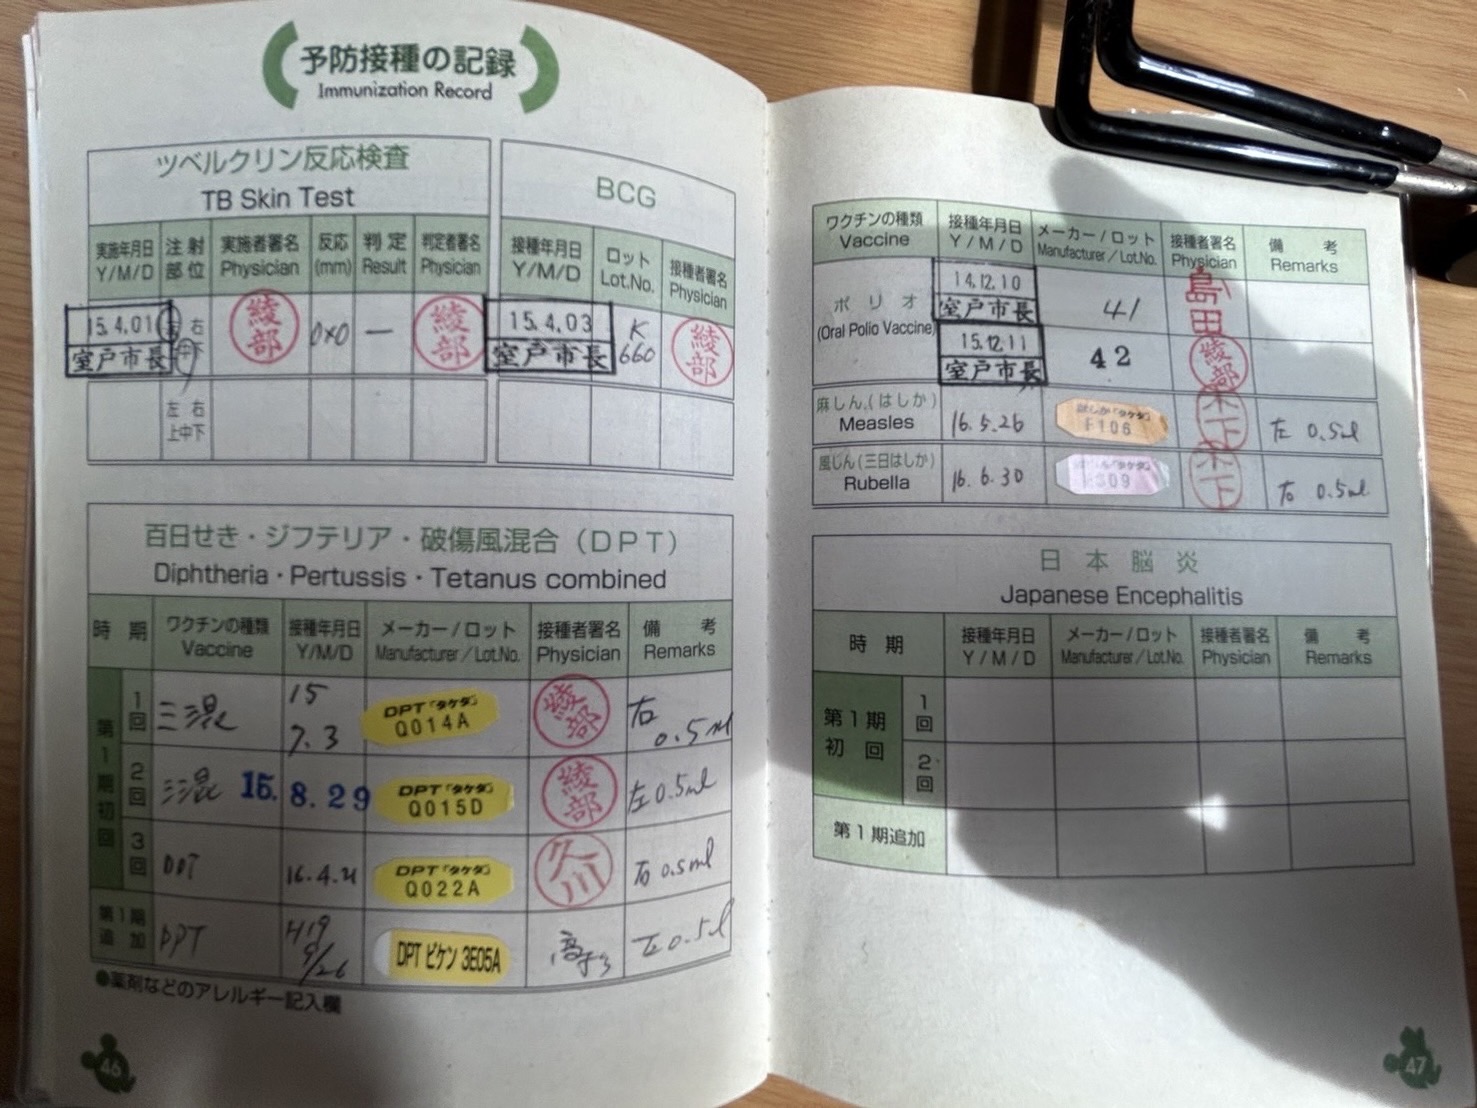 予防接種の記録
Immunization Record
ツベルクリン反応検査
TB Skin Test
実施年月日 Y/M/D 注射部位 実施者署名 Physician 反応 (mm) 判定 Result 判定者署名 Physician
15.4.01 室戸市長 左 右 上中下 綾部 0×0 − 綾部
左 右 上中下
BCG
接種年月日 Y/M/D ロット Lot.No. 接種者署名 Physician
15.4.03 室戸市長 K 660 綾部
百日せき・ジフテリア・破傷風混合（DPT）
Diphtheria・Pertussis・Tetanus combined
時期 ワクチンの種類 Vaccine 接種年月日 Y/M/D メーカー/ロット Manufacturer/Lot.No. 接種者署名 Physician 備考 Remarks
第1期初回 1回 三混 15 7.3 DPT「タケダ」 Q014A 綾部 右 0.5ml
2回 三混 15. 8.29 DPT「タケダ」 Q015D 綾部 左 0.5ml
3回 DPT 16.4.21 DPT「タケダ」 Q022A 久川 右 0.5ml
第1期追加 DPT H19 9/26 DPTビケン 3E05A 左 0.5ml
●薬剤などのアレルギー記入欄
46
ワクチンの種類 Vaccine 接種年月日 Y/M/D メーカー/ロット Manufacturer/Lot.No. 接種者署名 Physician 備考 Remarks
ポリオ (Oral Polio Vaccine) 14.12.10 室戸市長 41 島田
15.12.11 室戸市長 42 綾部
麻しん(はしか) Measles 16.5.26 はしか「タケダ」 F106 木下 左 0.5ml
風しん(三日はしか) Rubella 16.6.30 「タケダ」 S09 木下 右 0.5ml
日本脳炎
Japanese Encephalitis
時期 接種年月日 Y/M/D メーカー/ロット Manufacturer/Lot.No. 接種者署名 Physician 備考 Remarks
第1期初回 1回
2回
第1期追加
47